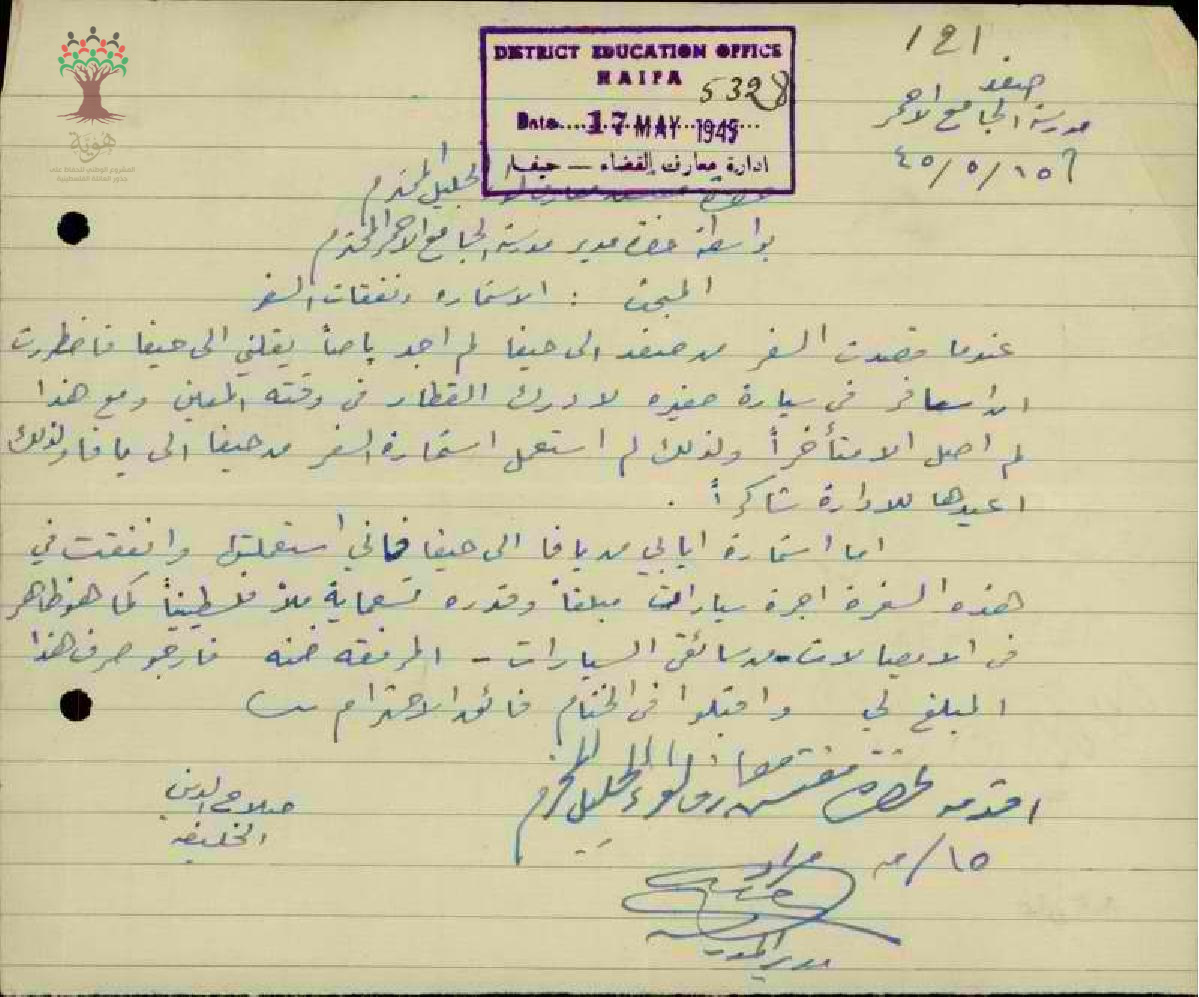 ١٤١
صفد
مدرسة الجامع الاحمر
٤٥/٥/١٥
DISTRICT EDUCATION OFFICE
HAIFA
5328
Date....17 MAY 1945....
ادارة معارف القضاء — حيفا
هوية
المشروع الوطني للحفاظ على
جذور العائلة الفلسطينية
حضرة مفتش معارف لواء الجليل المحترم
بواسطة حضرة مدير مدرسة الجامع الاحمر المحترم
المبحث : الاستماره ونفقات السفر
عندما قصدت السفر من صفد الى حيفا لم اجد باصاً يقلني الى حيفا فاضطررت
ان اسافر في سيارة صغيره لادرك القطار في وقته المعين ومع هذا
لم اصل الا متأخراً ولذلك لم استعمل استمارة السفر من حيفا الى يافا ولذلك
اعيدها للادارة شاكراً .
اما استمارة ايابي من يافا الى حيفا فاني استعملتها وانفقت في
هذه السفرة اجرة سيارات مبلغاً وقدره تسعماية ملاً فلسطينياً كما هو ظاهر
في الايصالات من سائقي السيارات - المرفقه ضمنه فارجو صرف هذا
المبلغ لي واقبلوا في الختام فائق الاحترام
صلاح الدين
الخليفه
اقدمه لحضرة مفتش معارف لواء الجليل المحترم
١٥/ منه
مدير المدرسة